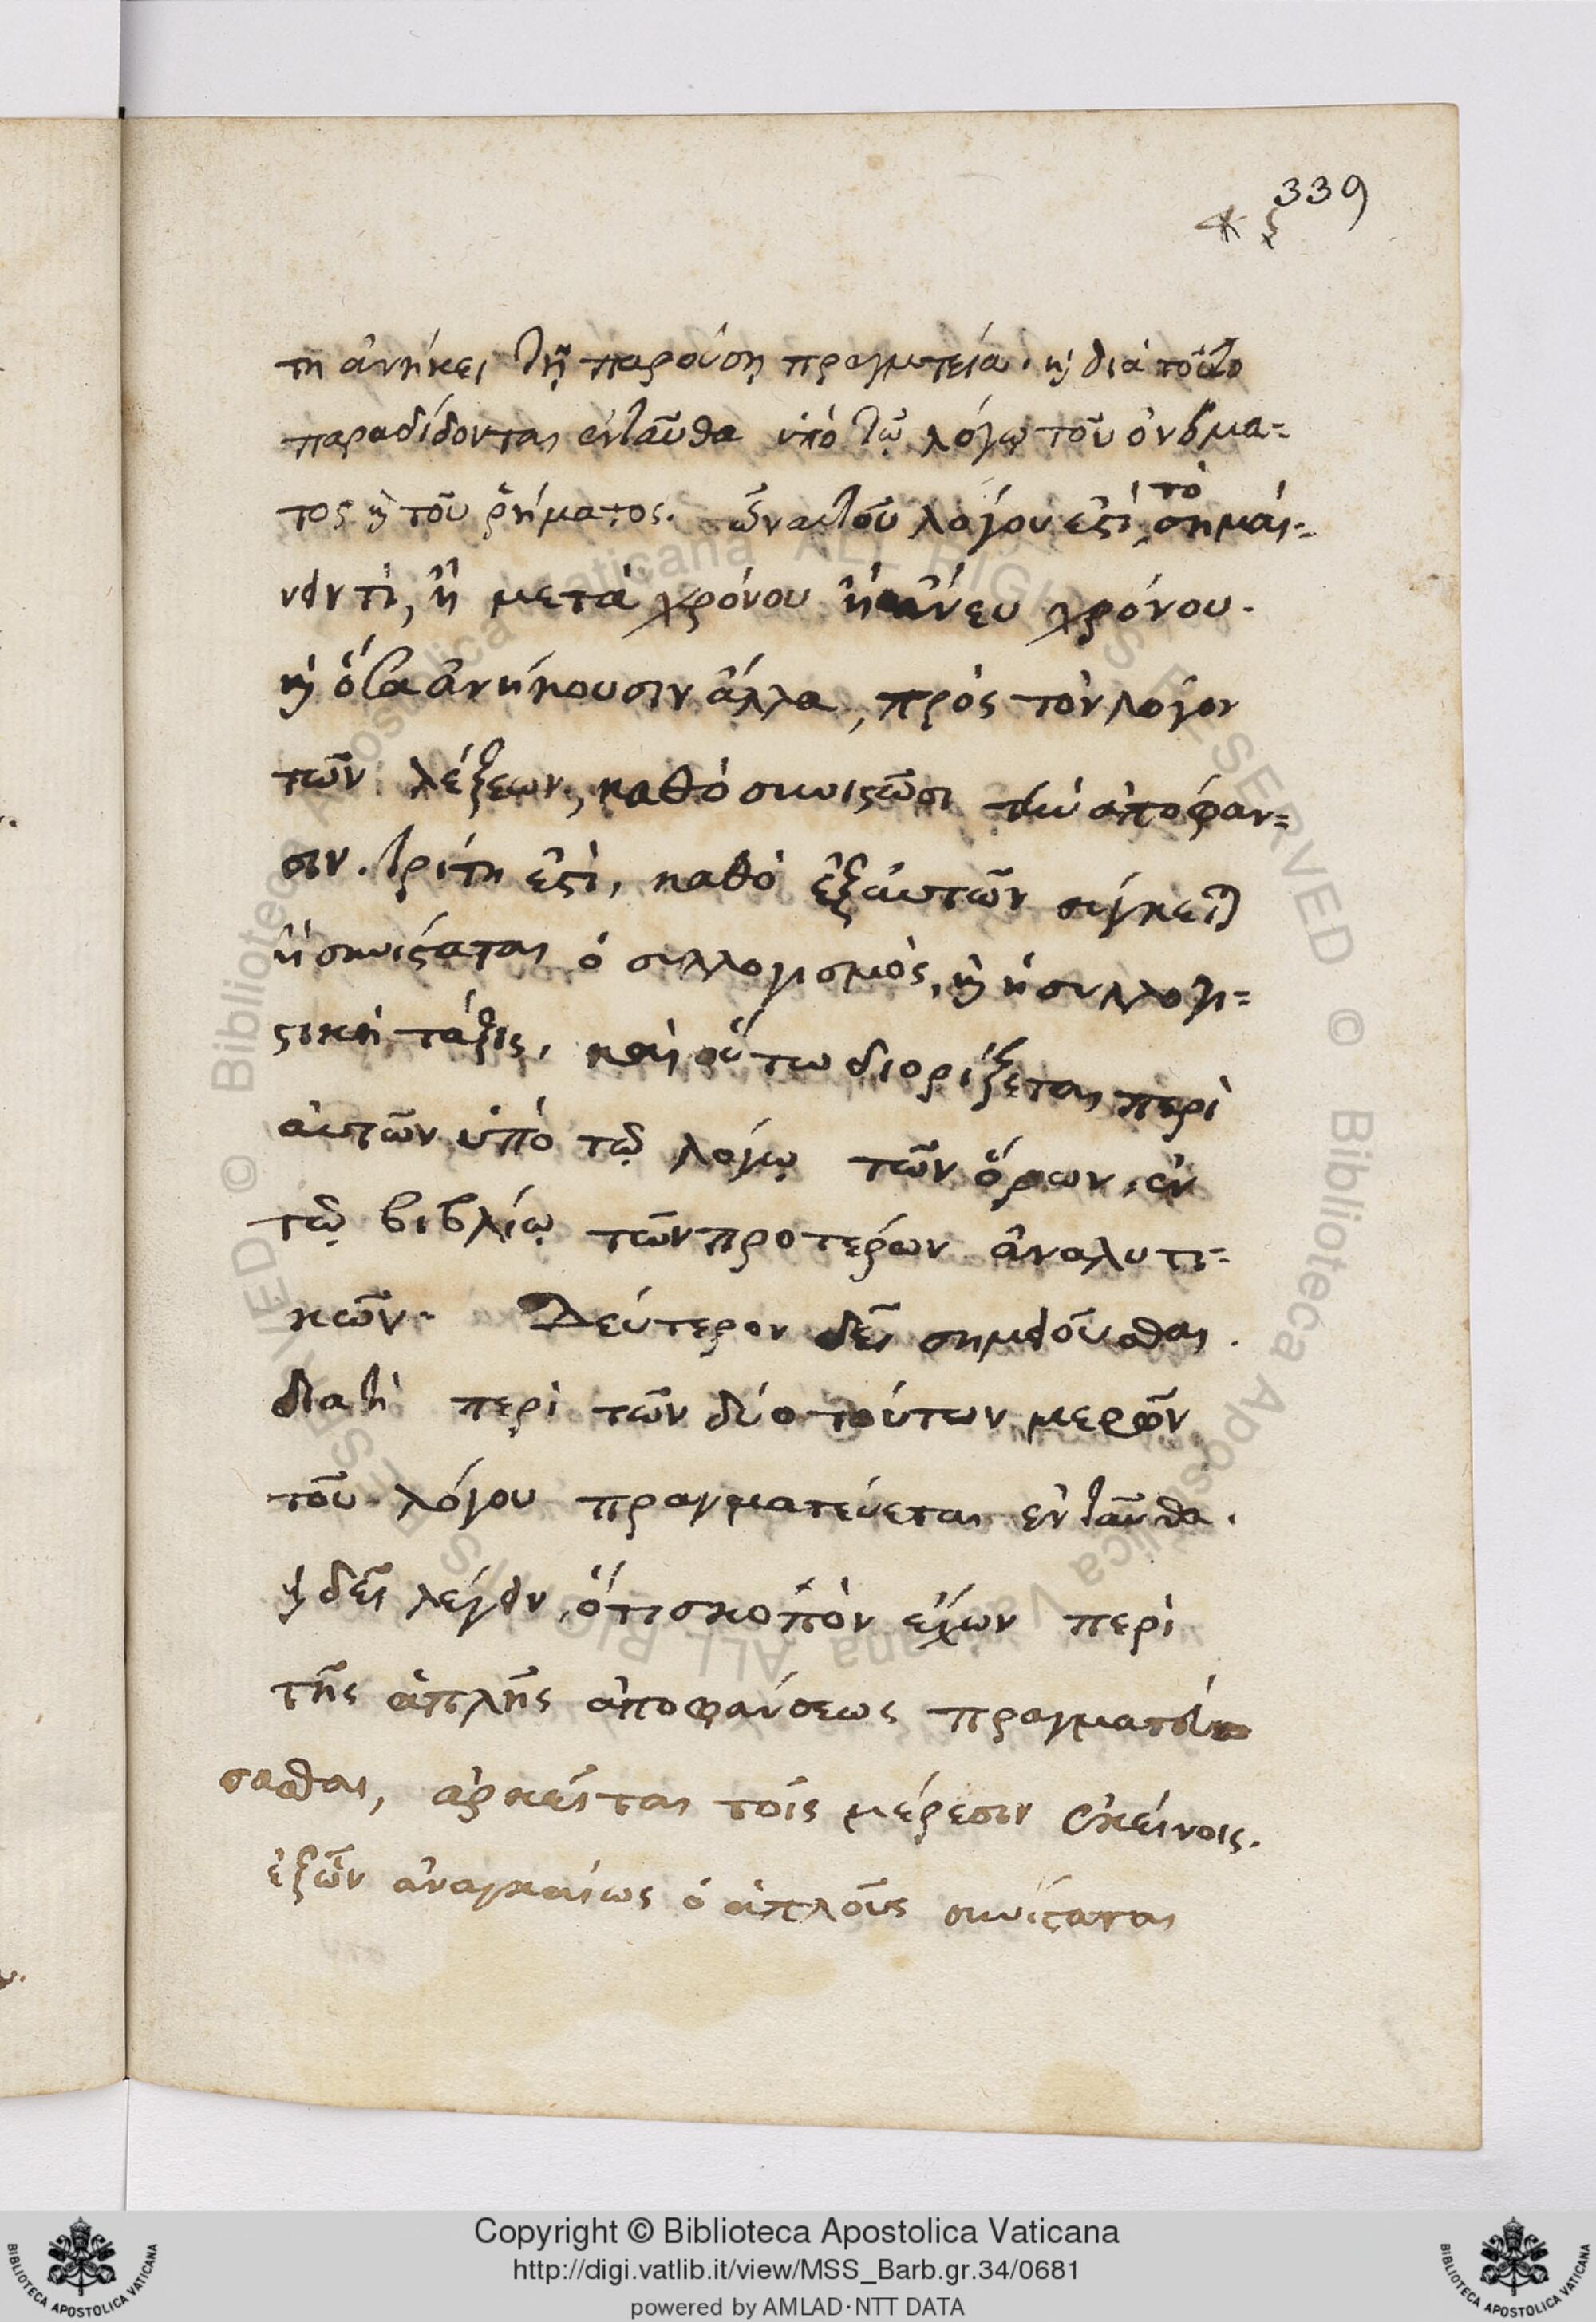 339
τη ἀνήκει τῇ παρούσῃ πραγματεία. ϗ διὰ τοῦτο
παραδίδονται ἐνταῦθα ὑπὸ τῷ λόγῳ τοῦ ὀνόμα-
τος ϗ τοῦ ῥήματος. ὧν αὐτοῦ λόγου ἐστὶ, τὸ σημαί-
νειν τὶ, ἢ μετὰ χρόνου ἢ ἄνευ χρόνου.
ϗ ὅτα ἀνήκουσιν ἄλλα, πρὸς τὸν λόγον
τῶν λέξεων, καθὸ συνιστῶσι τὴν ἀπόφαν-
σιν. τρίτη ἐστὶ, καθὸ ἐξ αὐτῶν σύγκειται
ἢ συνίσταται ὁ συλλογισμὸς, ϗ ἡ συλλογι-
στικὴ τάξις, καὶ οὕτω διορίζεται περὶ
αὐτῶν ὑπὸ τῷ λόγῳ τῶν ὅρων, ἐν
τῷ βιβλίῳ τῶν προτέρων ἀναλυτι-
κῶν. Δεύτερον δεῖ σημειοῦσθαι.
διατὶ περὶ τῶν δύο τούτων μερῶν
τοῦ λόγου πραγματεύεται ἐνταῦθα.
ϗ δεῖ λέγειν, ὅτι σκοπὸν ἔχων περὶ
τῆς ἁπλῆς ἀποφάνσεως πραγματεύ
σασθαι, ἀρκεῖται τοῖς μέρεσιν ἐκείνοις.
ἐξ ὧν ἀναγκαίως ὁ ἁπλοῦς συνίσταται
Copyright © Biblioteca Apostolica Vaticana
http://digi.vatlib.it/view/MSS_Barb.gr.34/0681
powered by AMLAD·NTT DATA